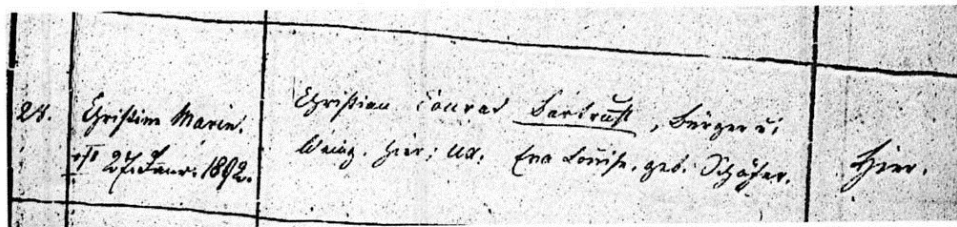 28. Christine Marie.
27. Janr. 1892.
Christian Conrad Bartruff, Bürger u.
Weing. hier; ux. Eva Louise, geb. Schäfer.
hier.